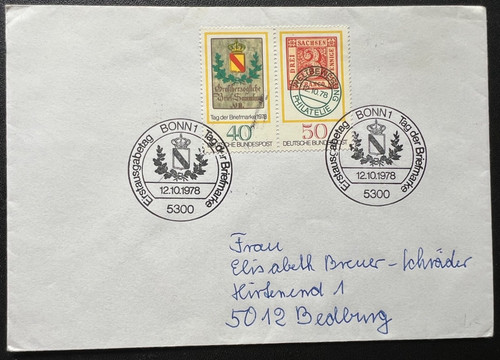 Großherzogliche
Tag der Briefmarke 1978
40
DEUTSCHE BUNDESPOST
DREI
SACHSEN
PFENNIGE
3
WELTBEWEGUNG
12.10.78
PHILATELIE
50
DEUTSCHE BUNDESPOST
Erstausgabetag BONN 1 Tag der Briefmarke
12.10.1978
5300
Erstausgabetag BONN 1 Tag der Briefmarke
12.10.1978
5300
Frau
Elisabeth Breuer-Schräder
Hirsenend 1
5012 Bedburg